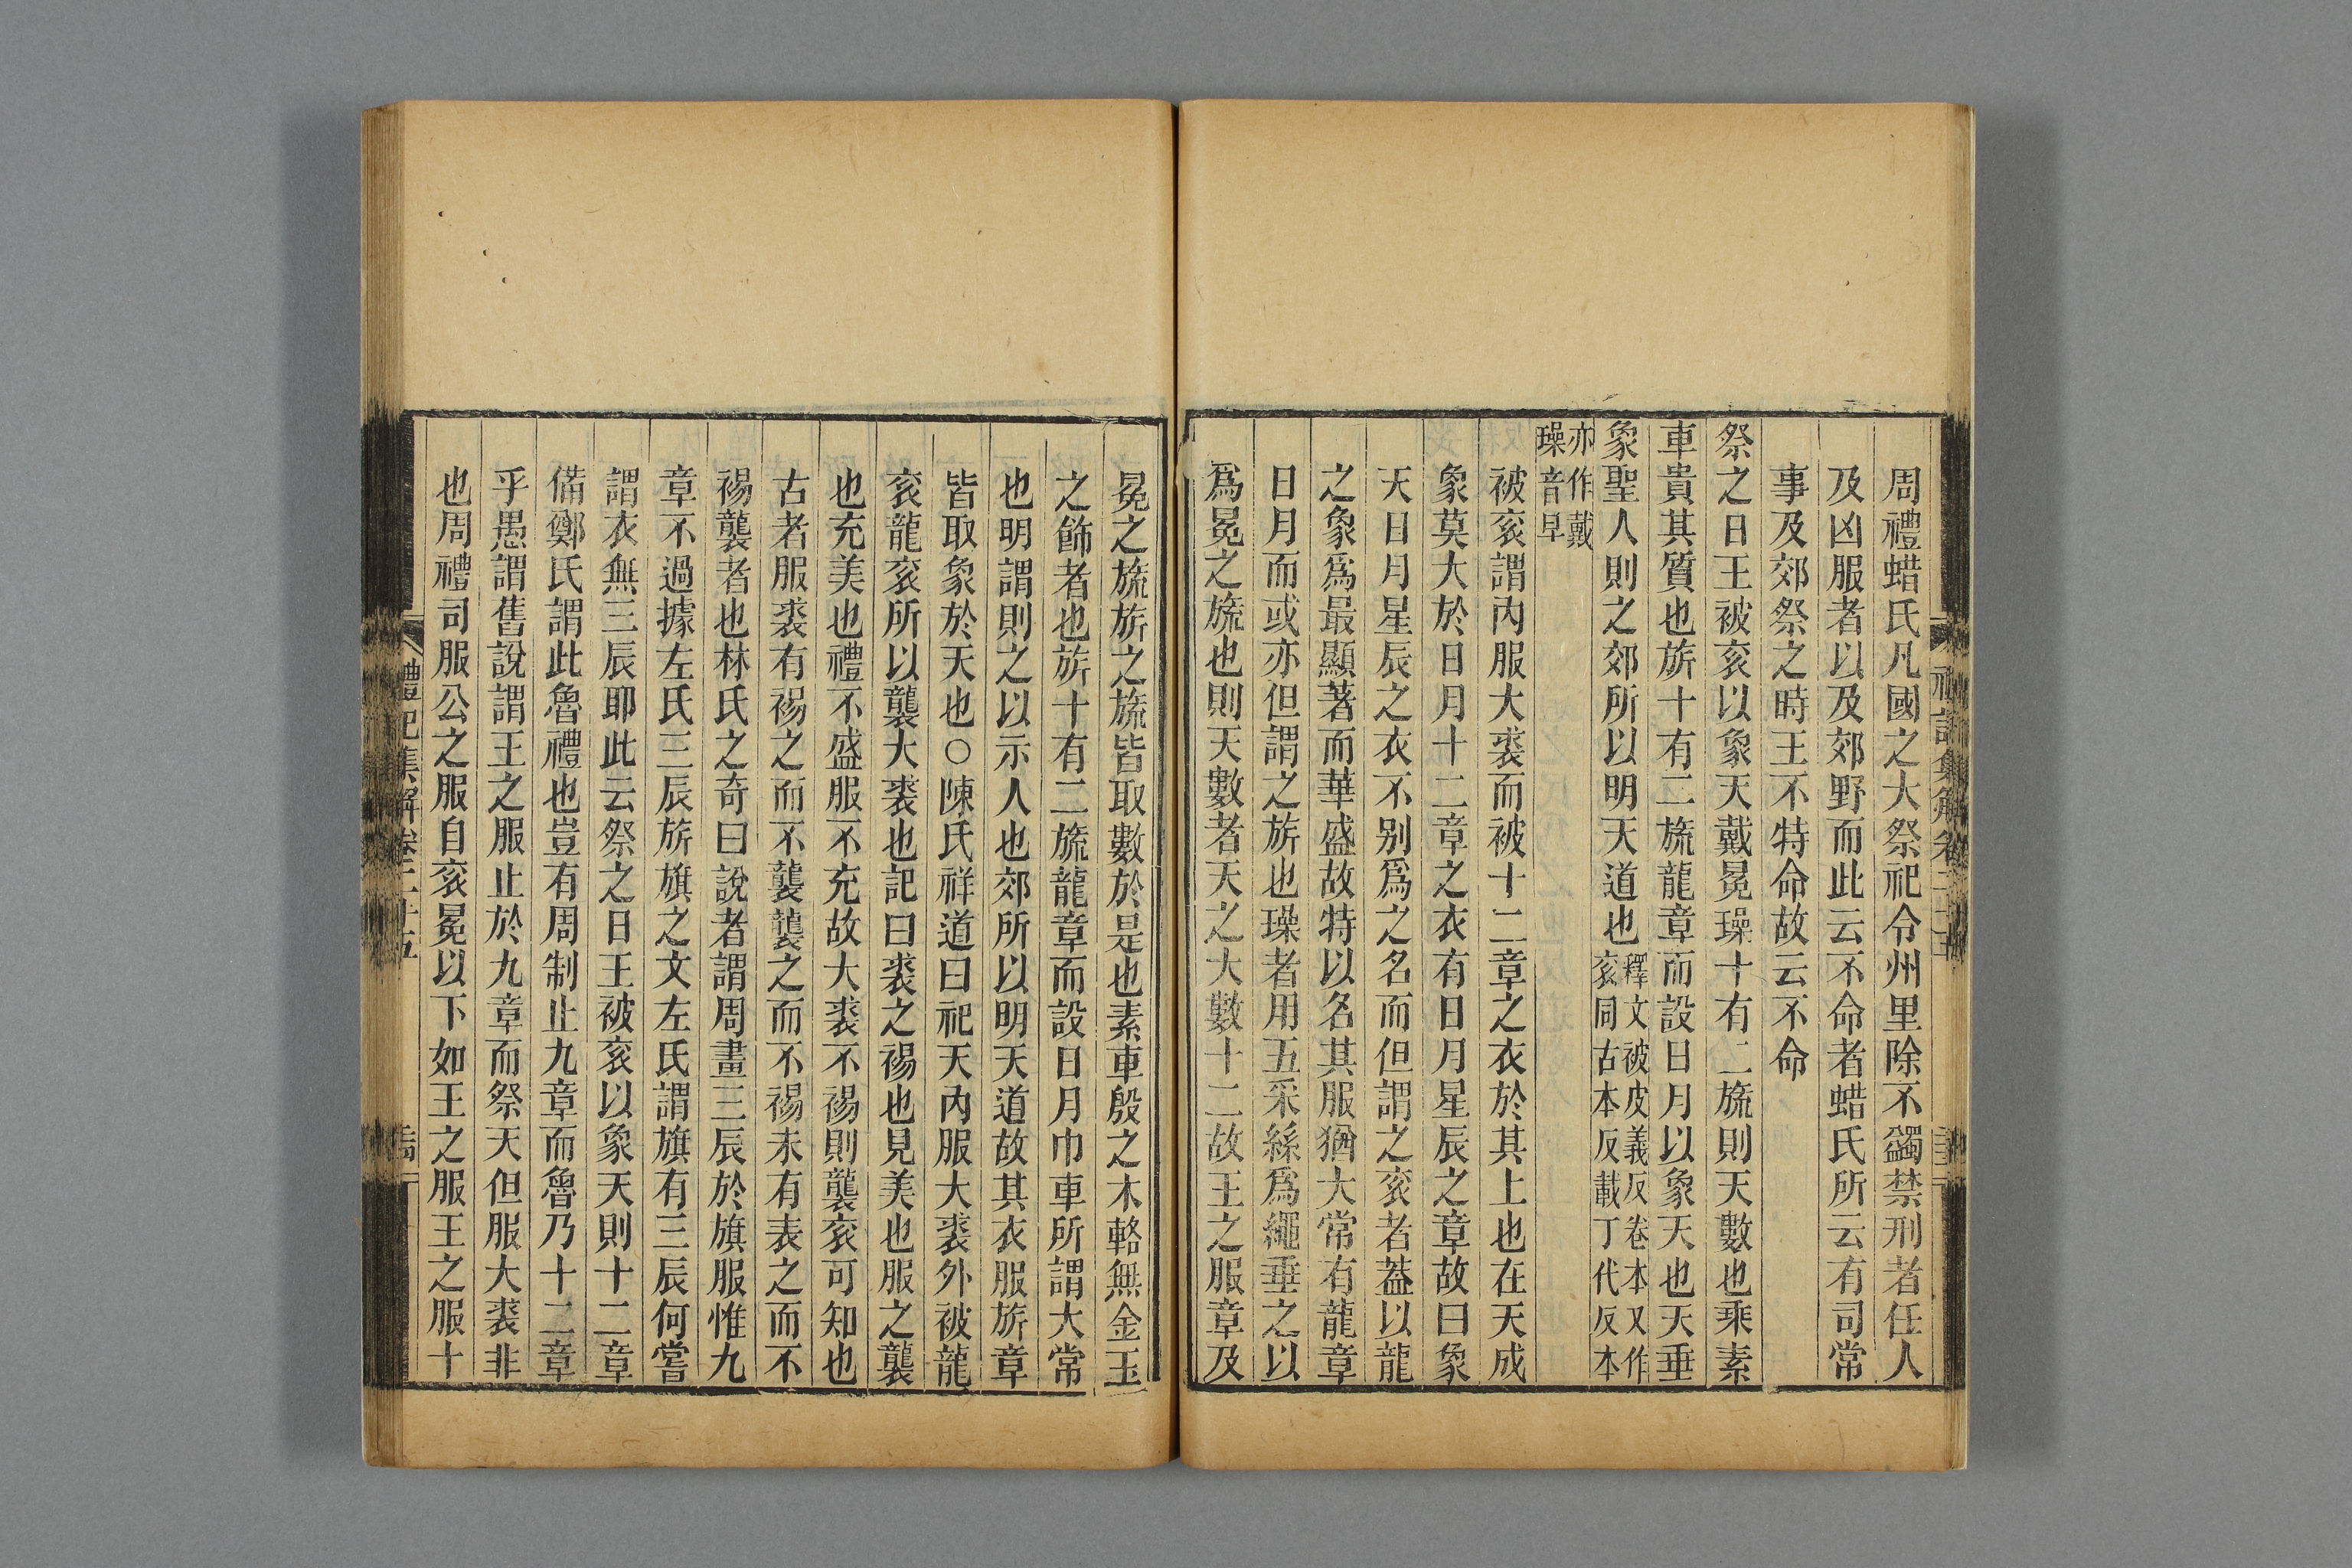 周禮蜡氏凡國之大祭祀令州里除不蠲禁刑者任人
及凶服者以及郊野而此云不命者蜡氏所云有司常
事及郊祭之時王不特命故云不命
祭之日王被袞以象天戴冕璪十有二旒則天數也乘素
車貴其質也旂十有二旒龍章而設日月以象天也天垂
象聖人則之郊所以明天道也釋文被皮義反卷本又作
袞同古本反載丁代反本
亦作戴
璪音早
被袞謂內服大裘而被十二章之衣於其上也在天成
象莫大於日月十二章之衣有日月星辰之章故曰象
天日月星辰之衣不別爲之名而但謂之袞者葢以龍
之象爲最顯著而華盛故特以名其服猶大常有龍章
日月而或亦但謂之旂也璪者用五采絲爲繩垂之以
爲冕之旒也則天數者天之大數十二故王之服章及
冕之旒旂之旒皆取數於是也素車殷之木輅無金玉
之飾者也旂十有二旒龍章而設日月巾車所謂大常
也明謂則之以示人也郊所以明天道故其衣服旂章
皆取象於天也○陳氏祥道曰祀天內服大裘外被龍
袞龍袞所以襲大裘也記曰裘之裼也見美也服之襲
也充美也禮不盛服不充故大裘不裼則襲袞可知也
古者服裘有裼之而不襲襲之而不裼未有表之而不
裼襲者也林氏之奇曰說者謂周畫三辰於旗服惟九
章不過據左氏三辰旂旗之文左氏謂旗有三辰何嘗
謂衣無三辰耶此云祭之日王被袞以象天則十二章
備鄭氏謂此魯禮也豈有周制止九章而魯乃十二章
乎愚謂舊說謂王之服止於九章而祭天但服大裘非
也周禮司服公之服自袞冕以下如王之服王之服十
禮記集解卷二十五